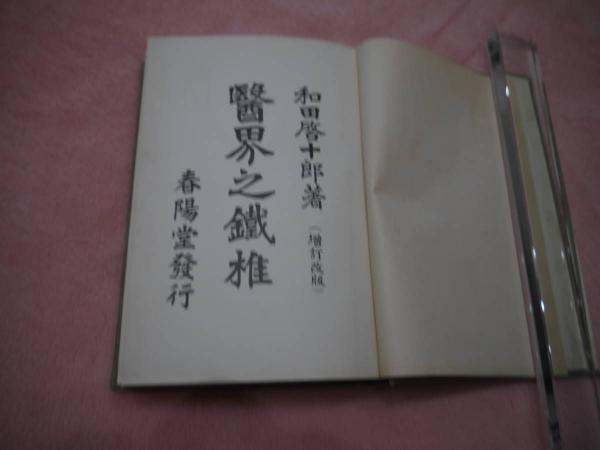 和田啓十郎著
（增訂改版）
醫界之鐵椎
春陽堂發行